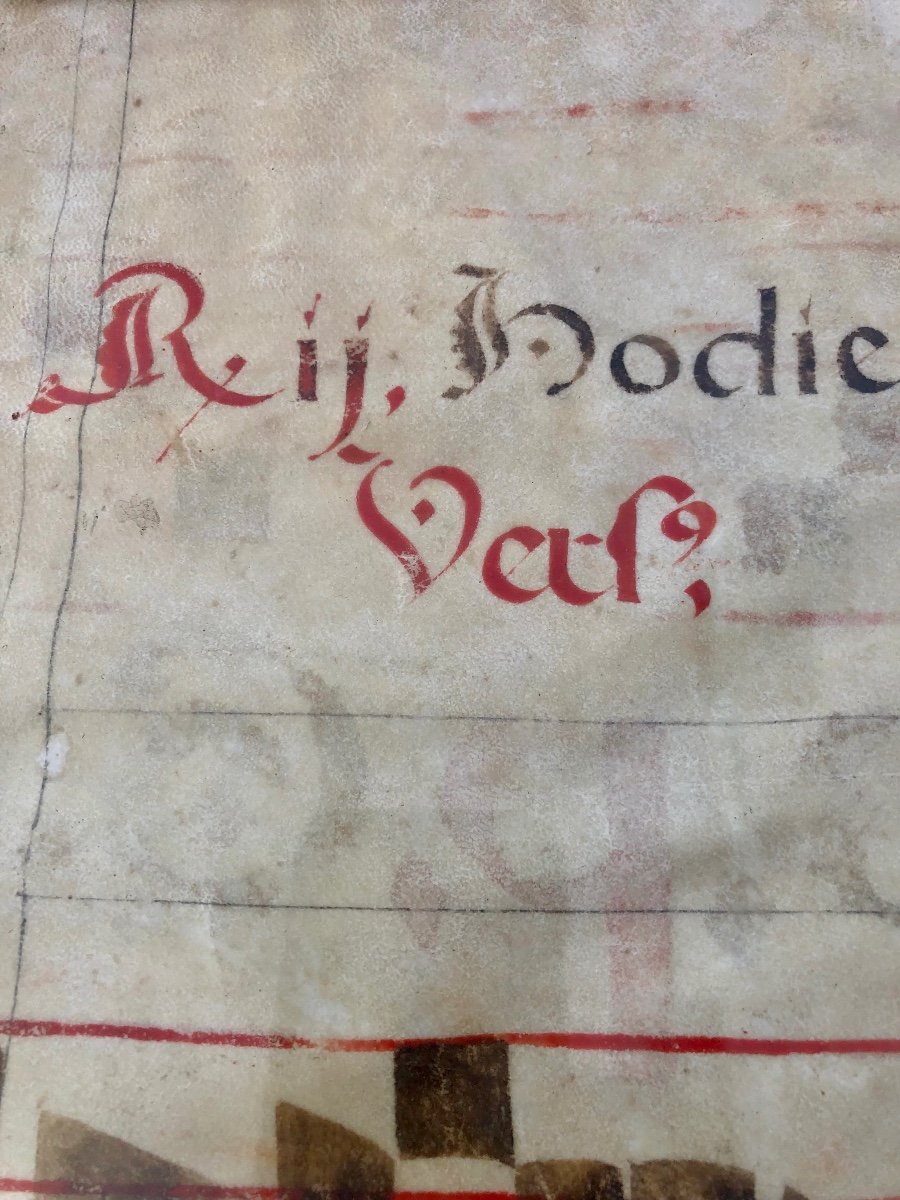 R ij, Hodie
Vers,